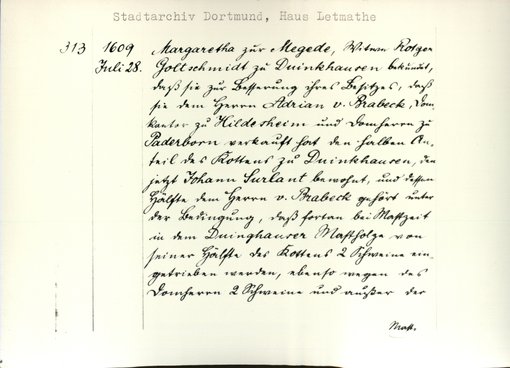 Stadtarchiv Dortmund, Haus Letmathe
313 1609 Juli 28.
Margaretha zur Megede, Witwe Rotger
Goltschmidt zu Duinkhausen bekundet,
daß sie zur Besserung ihres Besitzes, daß
sie dem Herrn Adrian v. Brabeck, Dom
kantor zu Hildesheim und Domherrn zu
Paderborn verkauft hat den halben An-
teil des Kottens zu Duinkhausen, den
jetzt Johann Surlant bewohnt, und dessen
Hälfte dem Herrn v. Brabeck gehört unter
der Bedingung, daß fortan bei Mastzeit
in dem Duinghauser Mastholze von
seiner Hälfte des Kottens 2 Schweine ein-
getrieben werden, ebenso wegen des
Domherrn 2 Schweine und außer der
Mast.